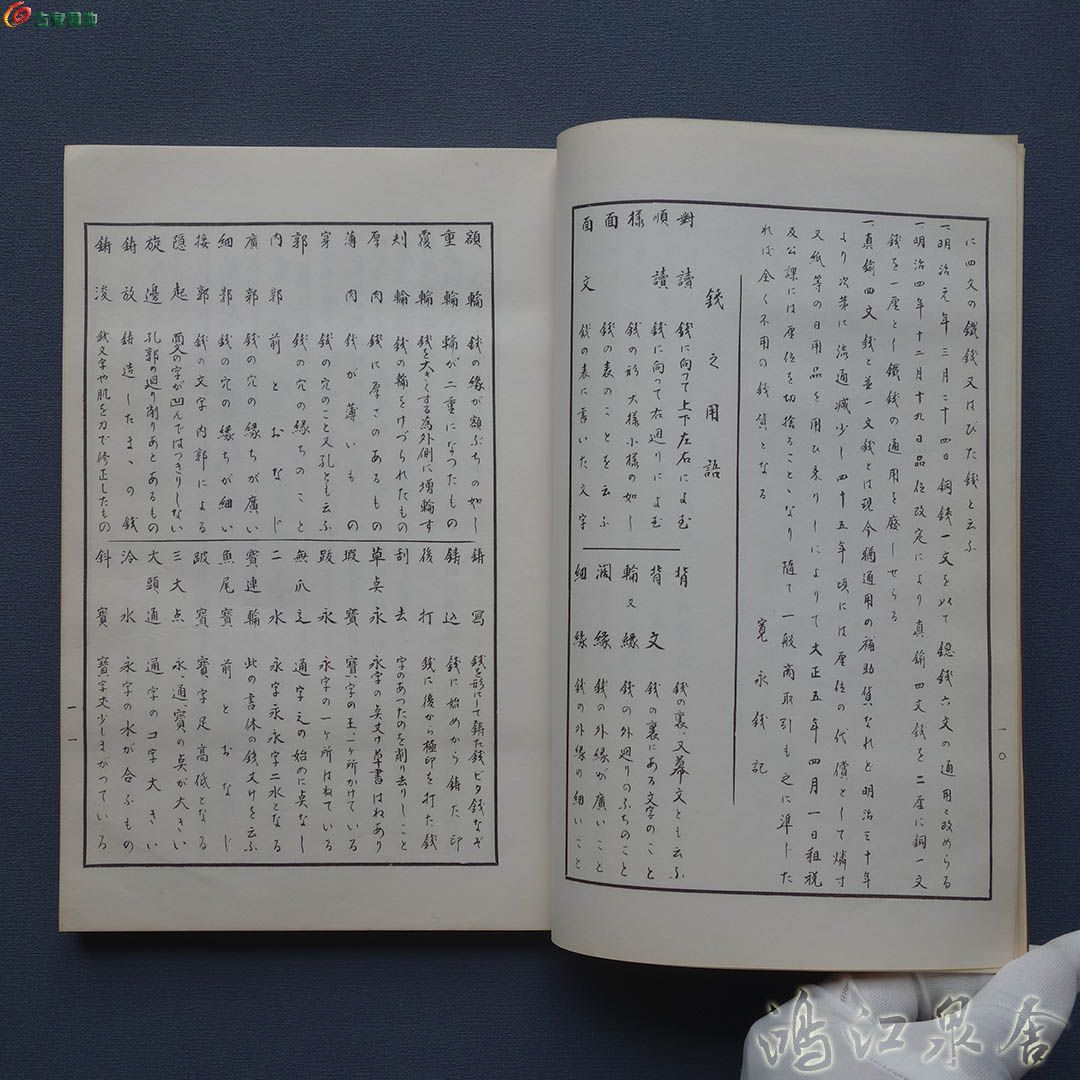 に四文の鐵錢又はびた錢と云ふ
一、明治元年三月二十四日銅錢一文を以て鐚錢六文の通用と改めらる
一、明治四年十二月十九日品位改定により真鍮四文錢を二厘に銅一文
錢を一厘とし鐵錢の通用を廢しせらる
一、真鍮四文錢と並一文錢とは現今猶通用の補助貨なれど明治三十年
より次第に流通減少し四十五年頃には厘位の代償として燐寸
又紙等の日用品を用ひ来りしによりて大正五年四月一日租税
及公課には厘位を切捨ることゝなり隨て一般商取引も之に準じた
れば全く不用の錢貨となる
寛永錢記
錢之用語
對讀 錢に向って上下左右によむ
順讀 錢に向って右廻りによむ
様 錢の形大様小様の如し
面 錢の表のことを云ふ
面文 錢の表に書いた文字
背 錢の裏又幕文とも云ふ
背文 錢の裏にある文字のこと
輪又縁 錢の外廻りのふちのこと
濶縁 錢の外縁が廣いこと
細縁 錢の外縁の細いこと
一〇
額輪 錢の縁が額ぶちの如し
重輪 輪が二重になつたもの
覆輪 錢を大きくする為外側に増輪す
刔輪 錢の輪をけづられたもの
厚肉 錢に厚さのあるもの
薄肉 錢が薄いもの
穿 錢の穴のこと又孔とも云ふ
郭 錢の穴の縁ちのこと
内郭 前とおなじ
廣郭 錢の穴の縁ちが廣い
細郭 錢の穴の縁ちが細い
接郭 錢の文字内郭による
隠起 面文の字が凹んではつきりしない
旋邊 孔郭の廻り削りあとあるもの
鋳放 鋳造したまゝの錢
鋳浚 錢文字や肌を刀で修正したもの
鋳写 錢を形にして鋳た錢ビタ錢など
鋳込 錢に始めから鋳た印
後打 錢に後から極印を打た錢
刮去 字のあつたのを削り去りしこと
草点永 永字の点丈け草書はねあり
瑕寶 寶字の王二ヶ所かけている
跋永 永字の一ヶ所はねている
無爪之 通字之の始めに点なし
二水 永字永永字二水となる
寶連輪 此の書体の錢又けを云ふ
魚尾寶 前とおなじ
跛寶 寶字足高低となる
三大点 永、通、寶の点が大きい
大頭通 通字のコ字大きい
冾水 永字の水が合ふもの
斜寶 寶字丈少しまがつている
一一
鴻江泉舍